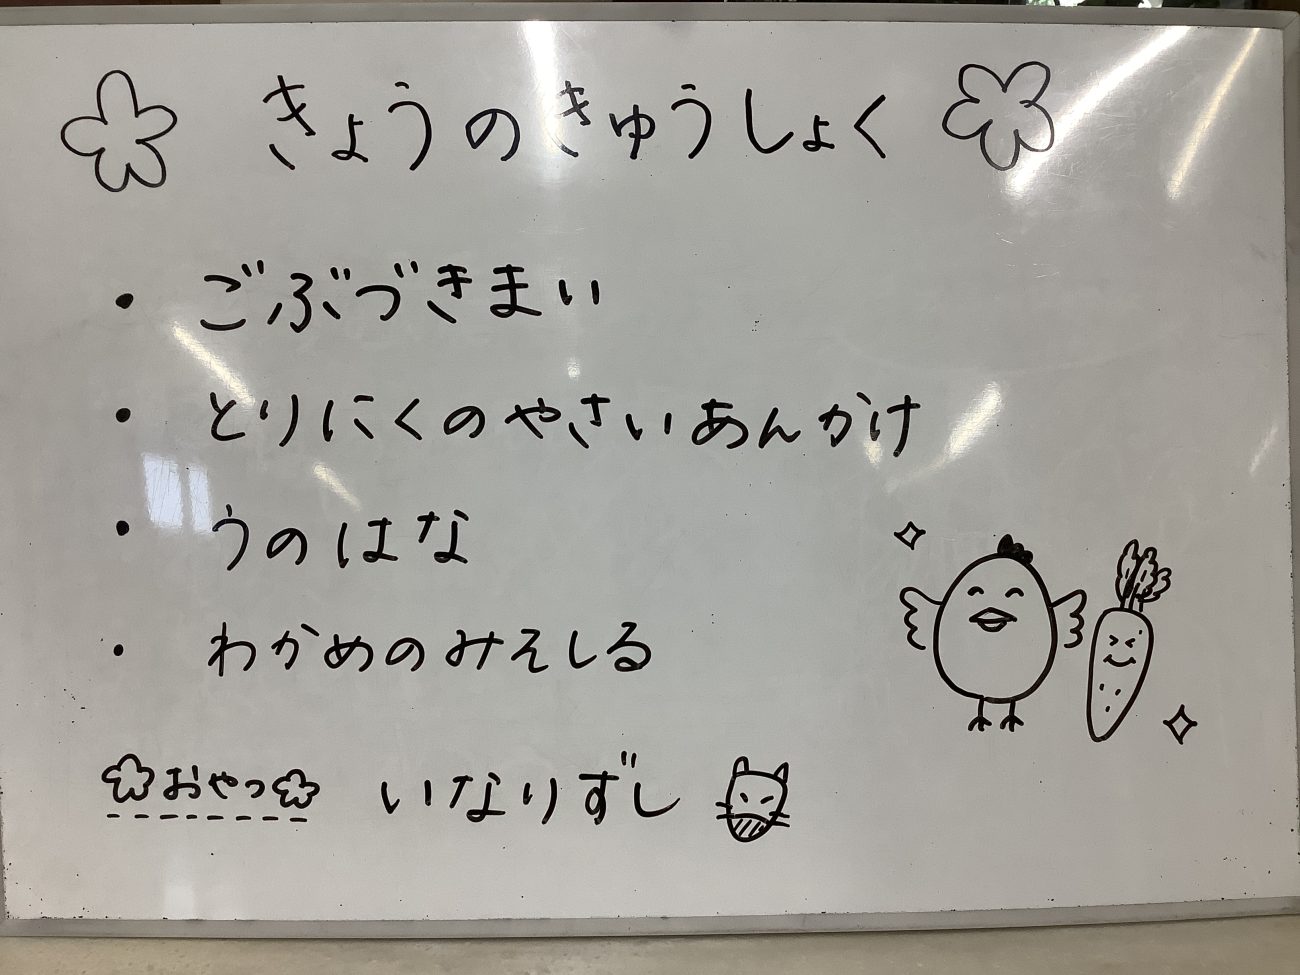 きょうのきゅうしょく
・ごぶづきまい
・とりにくのやさいあんかけ
・うのはな
・わかめのみそしる
おやつ いなりずし